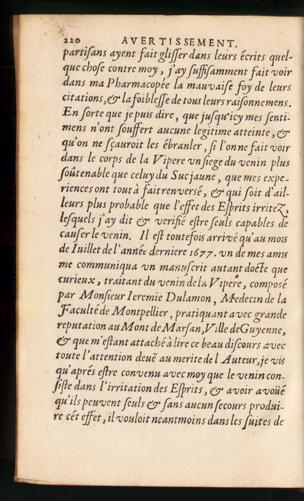 220 AVERTISSEMENT.
partisans ayent fait glisser dans leurs écrits quel-
que chose contre moy, j'ay suffisamment fait voir
dans ma Pharmacopée la mauvaise foy de leurs
citations, & la foiblesse de tous leurs raisonnemens.
En sorte que je puis dire, que jusqu'icy mes senti-
mens n'ont souffert aucune legitime atteinte, &
qu'on ne sçauroit les ébranler, si l'on ne fait voir
dans le corps de la Vipere vn siege du venin plus
soûtenable que celuy du Suc jaune, que mes expe-
riences ont tout à fait renversé, & qui soit d'ail-
leurs plus probable que l'effet des Esprits irritez,
lesquels j'ay dit & verifié estre seuls capables de
causer le venin. Il est toutefois arrivé qu'au mois
de Iuillet de l'année derniere 1677. vn de mes amis
me communiqua vn manuscrit autant docte que
curieux, traitant du venin de la Vipere, composé
par Monsieur Ieremie Dulamon, Medecin de la
Faculté de Montpellier, pratiquant avec grande
reputation au Mont de Marsan, Ville de Guyenne,
& que m'estant attaché à lire ce beau discours avec
toute l'attention deuë au merite de l'Auteur, je vis
qu'aprés estre convenu avec moy que le venin con-
siste dans l'irritation des Esprits, & avoir avoüé
qu'ils peuvent seuls & sans aucun secours produi-
re cét effet, il vouloit neantmoins dans les suites de